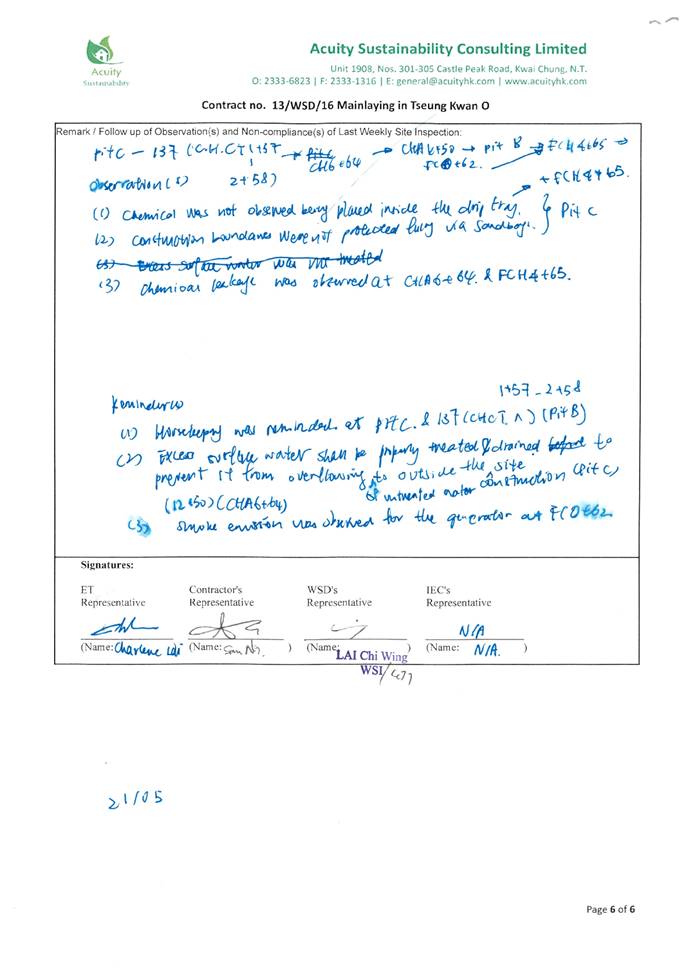 Acuity Sustainability Consulting Limited
Acuity
Sustainability
Unit 1908, Nos. 301-305 Castle Peak Road, Kwai Chung, N.T.
O: 2333-6823 | F: 2333-1316 | E: general@acuityhk.com | www.acuityhk.com
Contract no. 13/WSD/16 Mainlaying in Tseung Kwan O
Remark / Follow up of Observation(s) and Non-compliance(s) of Last Weekly Site Inspection:
pit C – 137 (C.H.CT1+57 → CH6+64 → CHA 6+50 → pit B → FCH4+65 →
FC0+62.
Observation(s) 2+58) + FCH4+65.
(1) Chemical was not observed being placed inside the drip tray. } Pit C
(2) Construction boundaries were not protected fully via Sandbags.
(3) Excess surface water was not treated
(3) Chemical leakage was observed at CHA6+64. & FCH4+65.
1+57 – 2+58
Reminder(s)
(1) Housekeeping was reminded at pit C. & 137 (CHCT. A) (Pit B)
(2) Excess surface water shall be properly treated & drained before to
prevent it from overflowing to outside the site
of untreated water construction (Pit C)
(12+50) (CHA6+64)
(3) Smoke emission was observed for the generator at FC0+62
Signatures:
ET
Representative
Contractor's
Representative
WSD's
Representative
IEC's
Representative
N/A
(Name: Charlene Lai
(Name: Sam Ng. )
(Name: )
(Name: N/A. )
LAI Chi Wing
WSI/477
21/05
Page 6 of 6